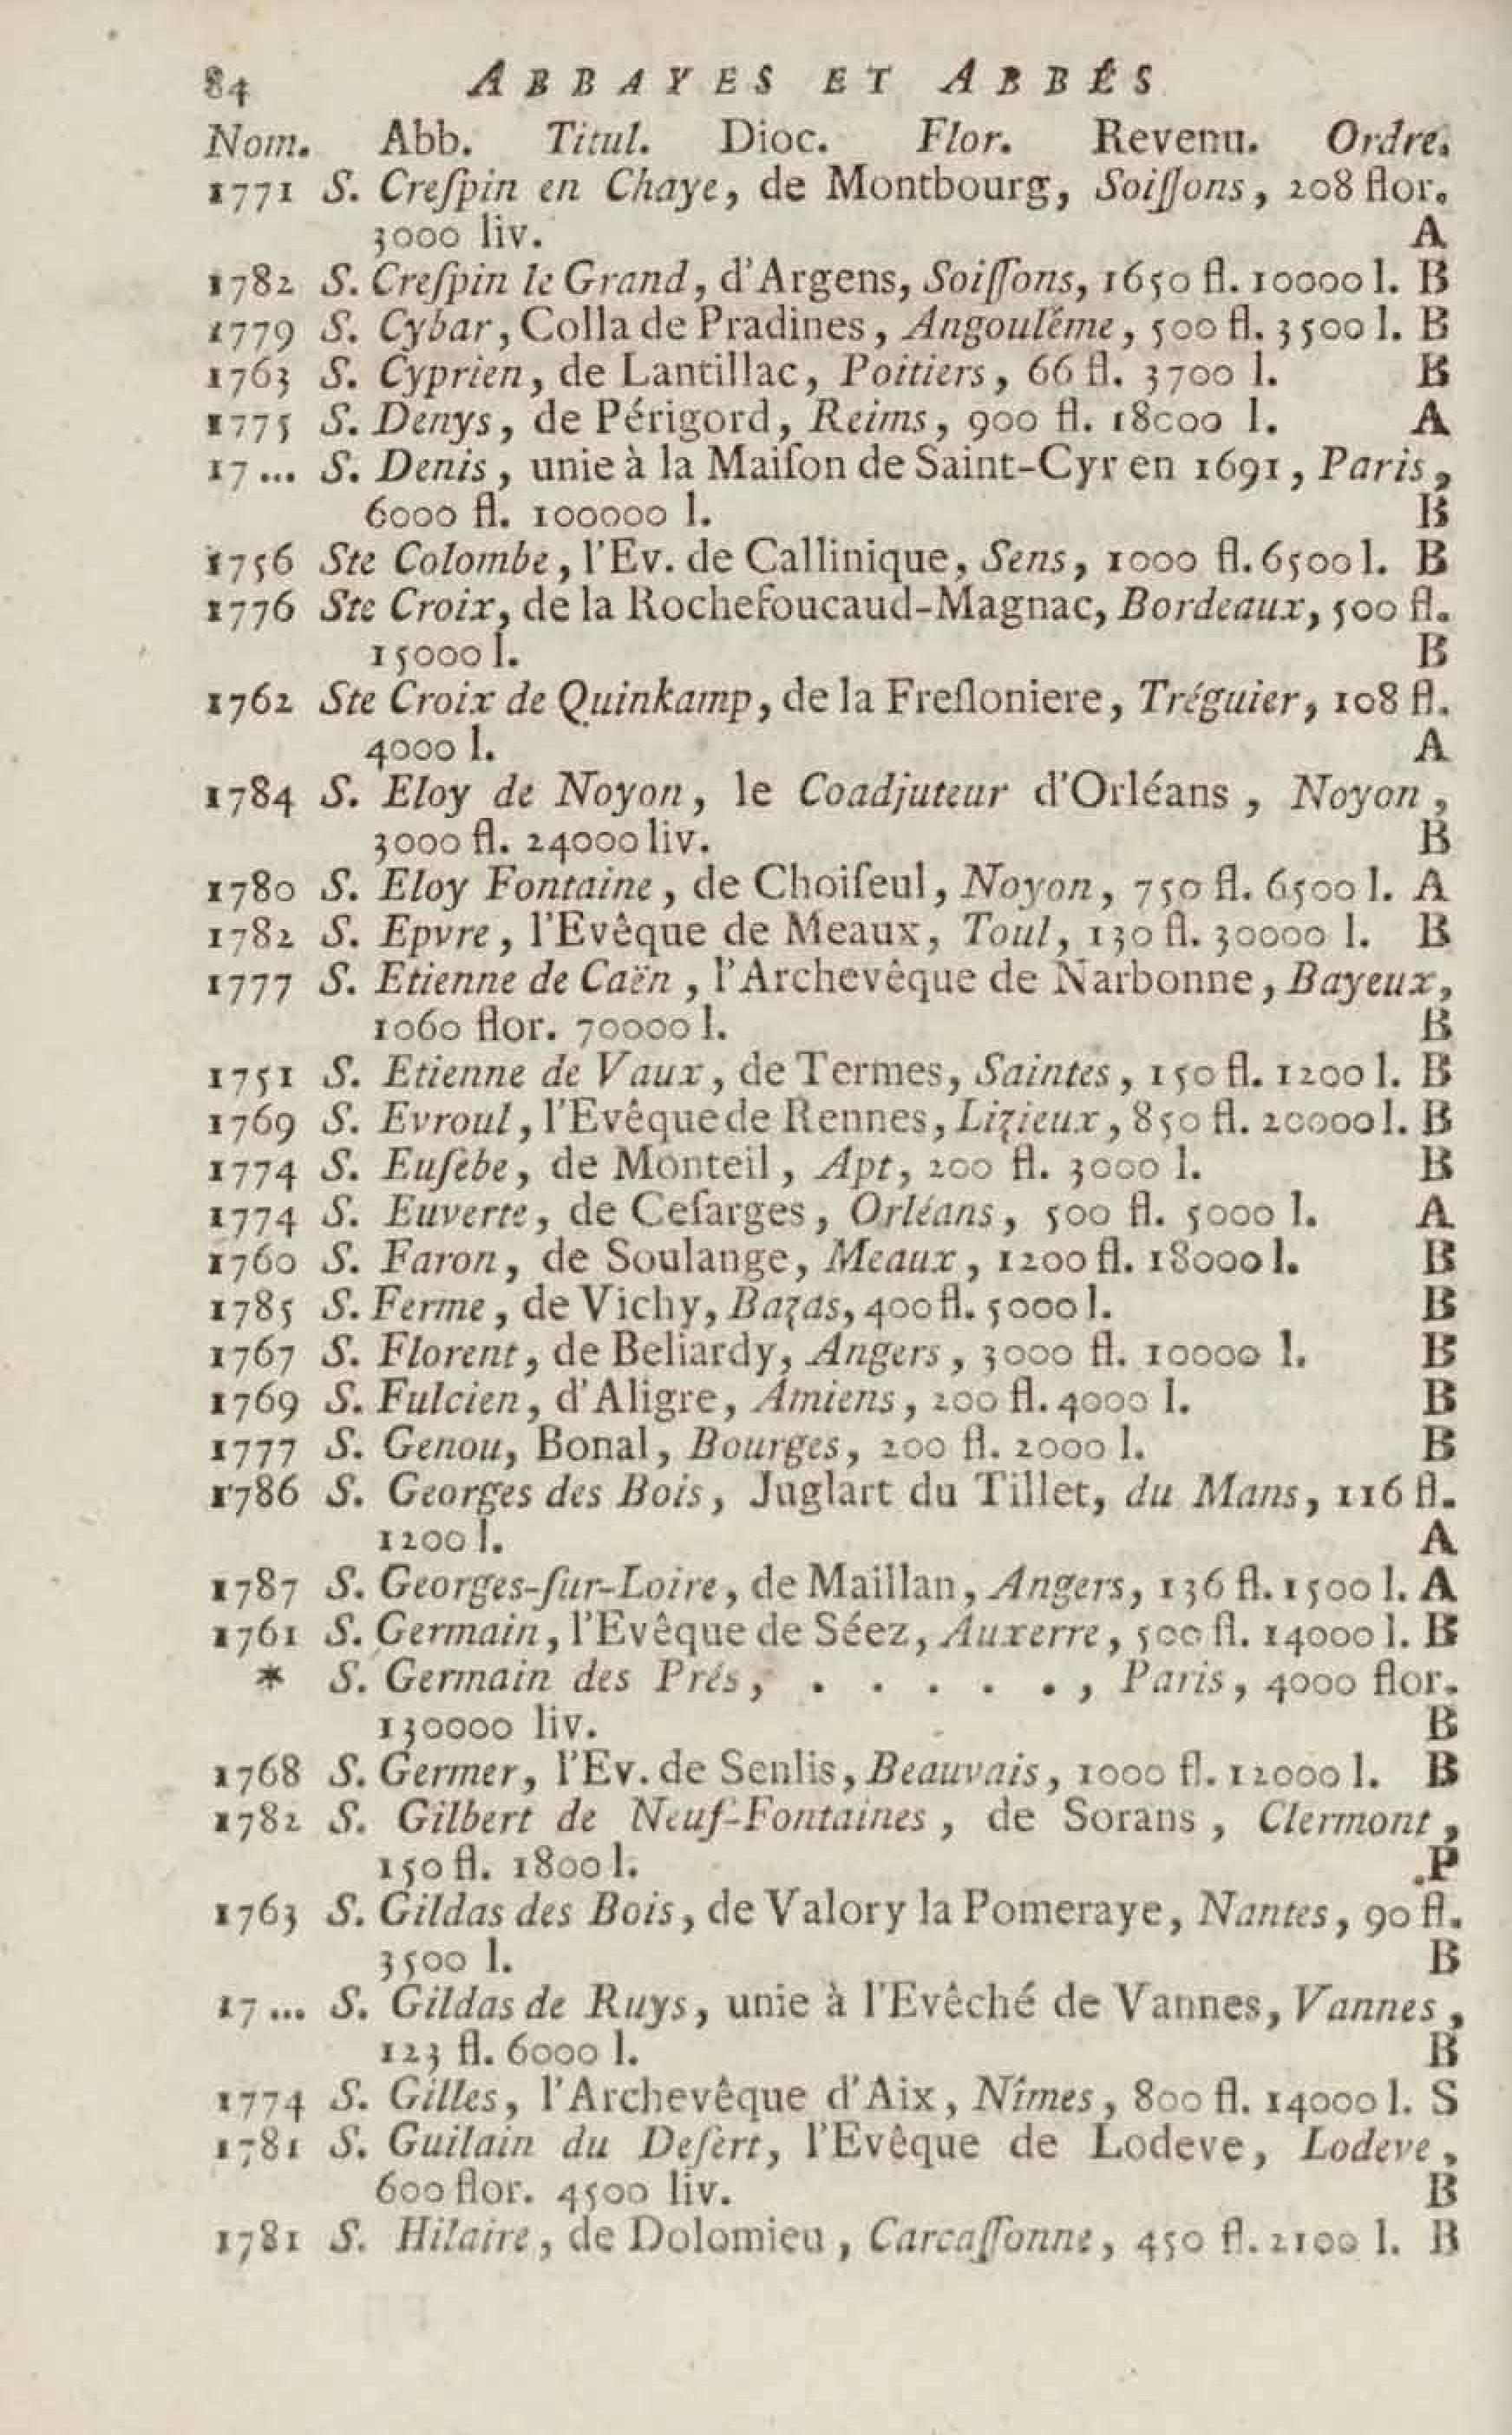 84 ABBAYES ET ABBÉS
Nom. Abb. Titul. Dioc. Flor. Revenu. Ordre.
1771 S. Creſpin en Chaye, de Montbourg, Soiſſons, 208 flor.
3000 liv. A
1782 S. Creſpin le Grand, d'Argens, Soiſſons, 1650 fl. 10000 l. B
1779 S. Cybar, Colla de Pradines, Angoulême, 500 fl. 3500 l. B
1763 S. Cyprien, de Lantillac, Poitiers, 66 fl. 3700 l. B
1775 S. Denys, de Périgord, Reims, 900 fl. 18000 l. A
17... S. Denis, unie à la Maiſon de Saint-Cyr en 1691, Paris,
6000 fl. 100000 l. B
1756 Ste Colombe, l'Ev. de Callinique, Sens, 1000 fl. 6500 l. B
1776 Ste Croix, de la Rochefoucaud-Magnac, Bordeaux, 500 fl.
15000 l. B
1762 Ste Croix de Quinkamp, de la Freſloniere, Tréguier, 108 fl.
4000 l. A
1784 S. Eloy de Noyon, le Coadjuteur d'Orléans, Noyon,
3000 fl. 24000 liv. B
1780 S. Eloy Fontaine, de Choiſeul, Noyon, 750 fl. 6500 l. A
1782 S. Epvre, l'Evêque de Meaux, Toul, 130 fl. 30000 l. B
1777 S. Etienne de Caën, l'Archevêque de Narbonne, Bayeux,
1060 flor. 70000 l. B
1751 S. Etienne de Vaux, de Termes, Saintes, 150 fl. 1200 l. B
1769 S. Evroul, l'Evêque de Rennes, Lizieux, 850 fl. 20000 l. B
1774 S. Euſebe, de Monteil, Apt, 200 fl. 3000 l. B
1774 S. Euverte, de Ceſarges, Orléans, 500 fl. 5000 l. A
1760 S. Faron, de Soulange, Meaux, 1200 fl. 18000 l. B
1785 S. Ferme, de Vichy, Bazas, 400 fl. 5000 l. B
1767 S. Florent, de Beliardy, Angers, 3000 fl. 10000 l. B
1769 S. Fulcien, d'Aligre, Amiens, 200 fl. 4000 l. B
1777 S. Genou, Bonal, Bourges, 200 fl. 2000 l. B
1786 S. Georges des Bois, Juglart du Tillet, du Mans, 116 fl.
1200 l. A
1787 S. Georges-ſur-Loire, de Maillan, Angers, 136 fl. 1500 l. A
1761 S. Germain, l'Evêque de Séez, Auxerre, 500 fl. 14000 l. B
* S. Germain des Prés, . . . . ., Paris, 4000 flor.
130000 liv. B
1768 S. Germer, l'Ev. de Senlis, Beauvais, 1000 fl. 12000 l. B
1782 S. Gilbert de Neuf-Fontaines, de Sorans, Clermont,
150 fl. 1800 l. P
1763 S. Gildas des Bois, de Valory la Pomeraye, Nantes, 90 fl.
3500 l. B
17... S. Gildas de Ruys, unie à l'Evêché de Vannes, Vannes,
123 fl. 6000 l. B
1774 S. Gilles, l'Archevêque d'Aix, Nîmes, 800 fl. 14000 l. S
1781 S. Guilain du Deſert, l'Evêque de Lodeve, Lodeve,
600 flor. 4500 liv. B
1781 S. Hilaire, de Dolomieu, Carcaſſonne, 450 fl. 2100 l. B